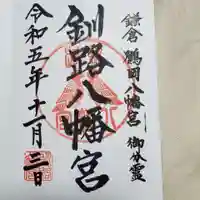 鎌倉 鶴岡八幡宮 御分霊
釧路八幡宮
令和五年十一月三日